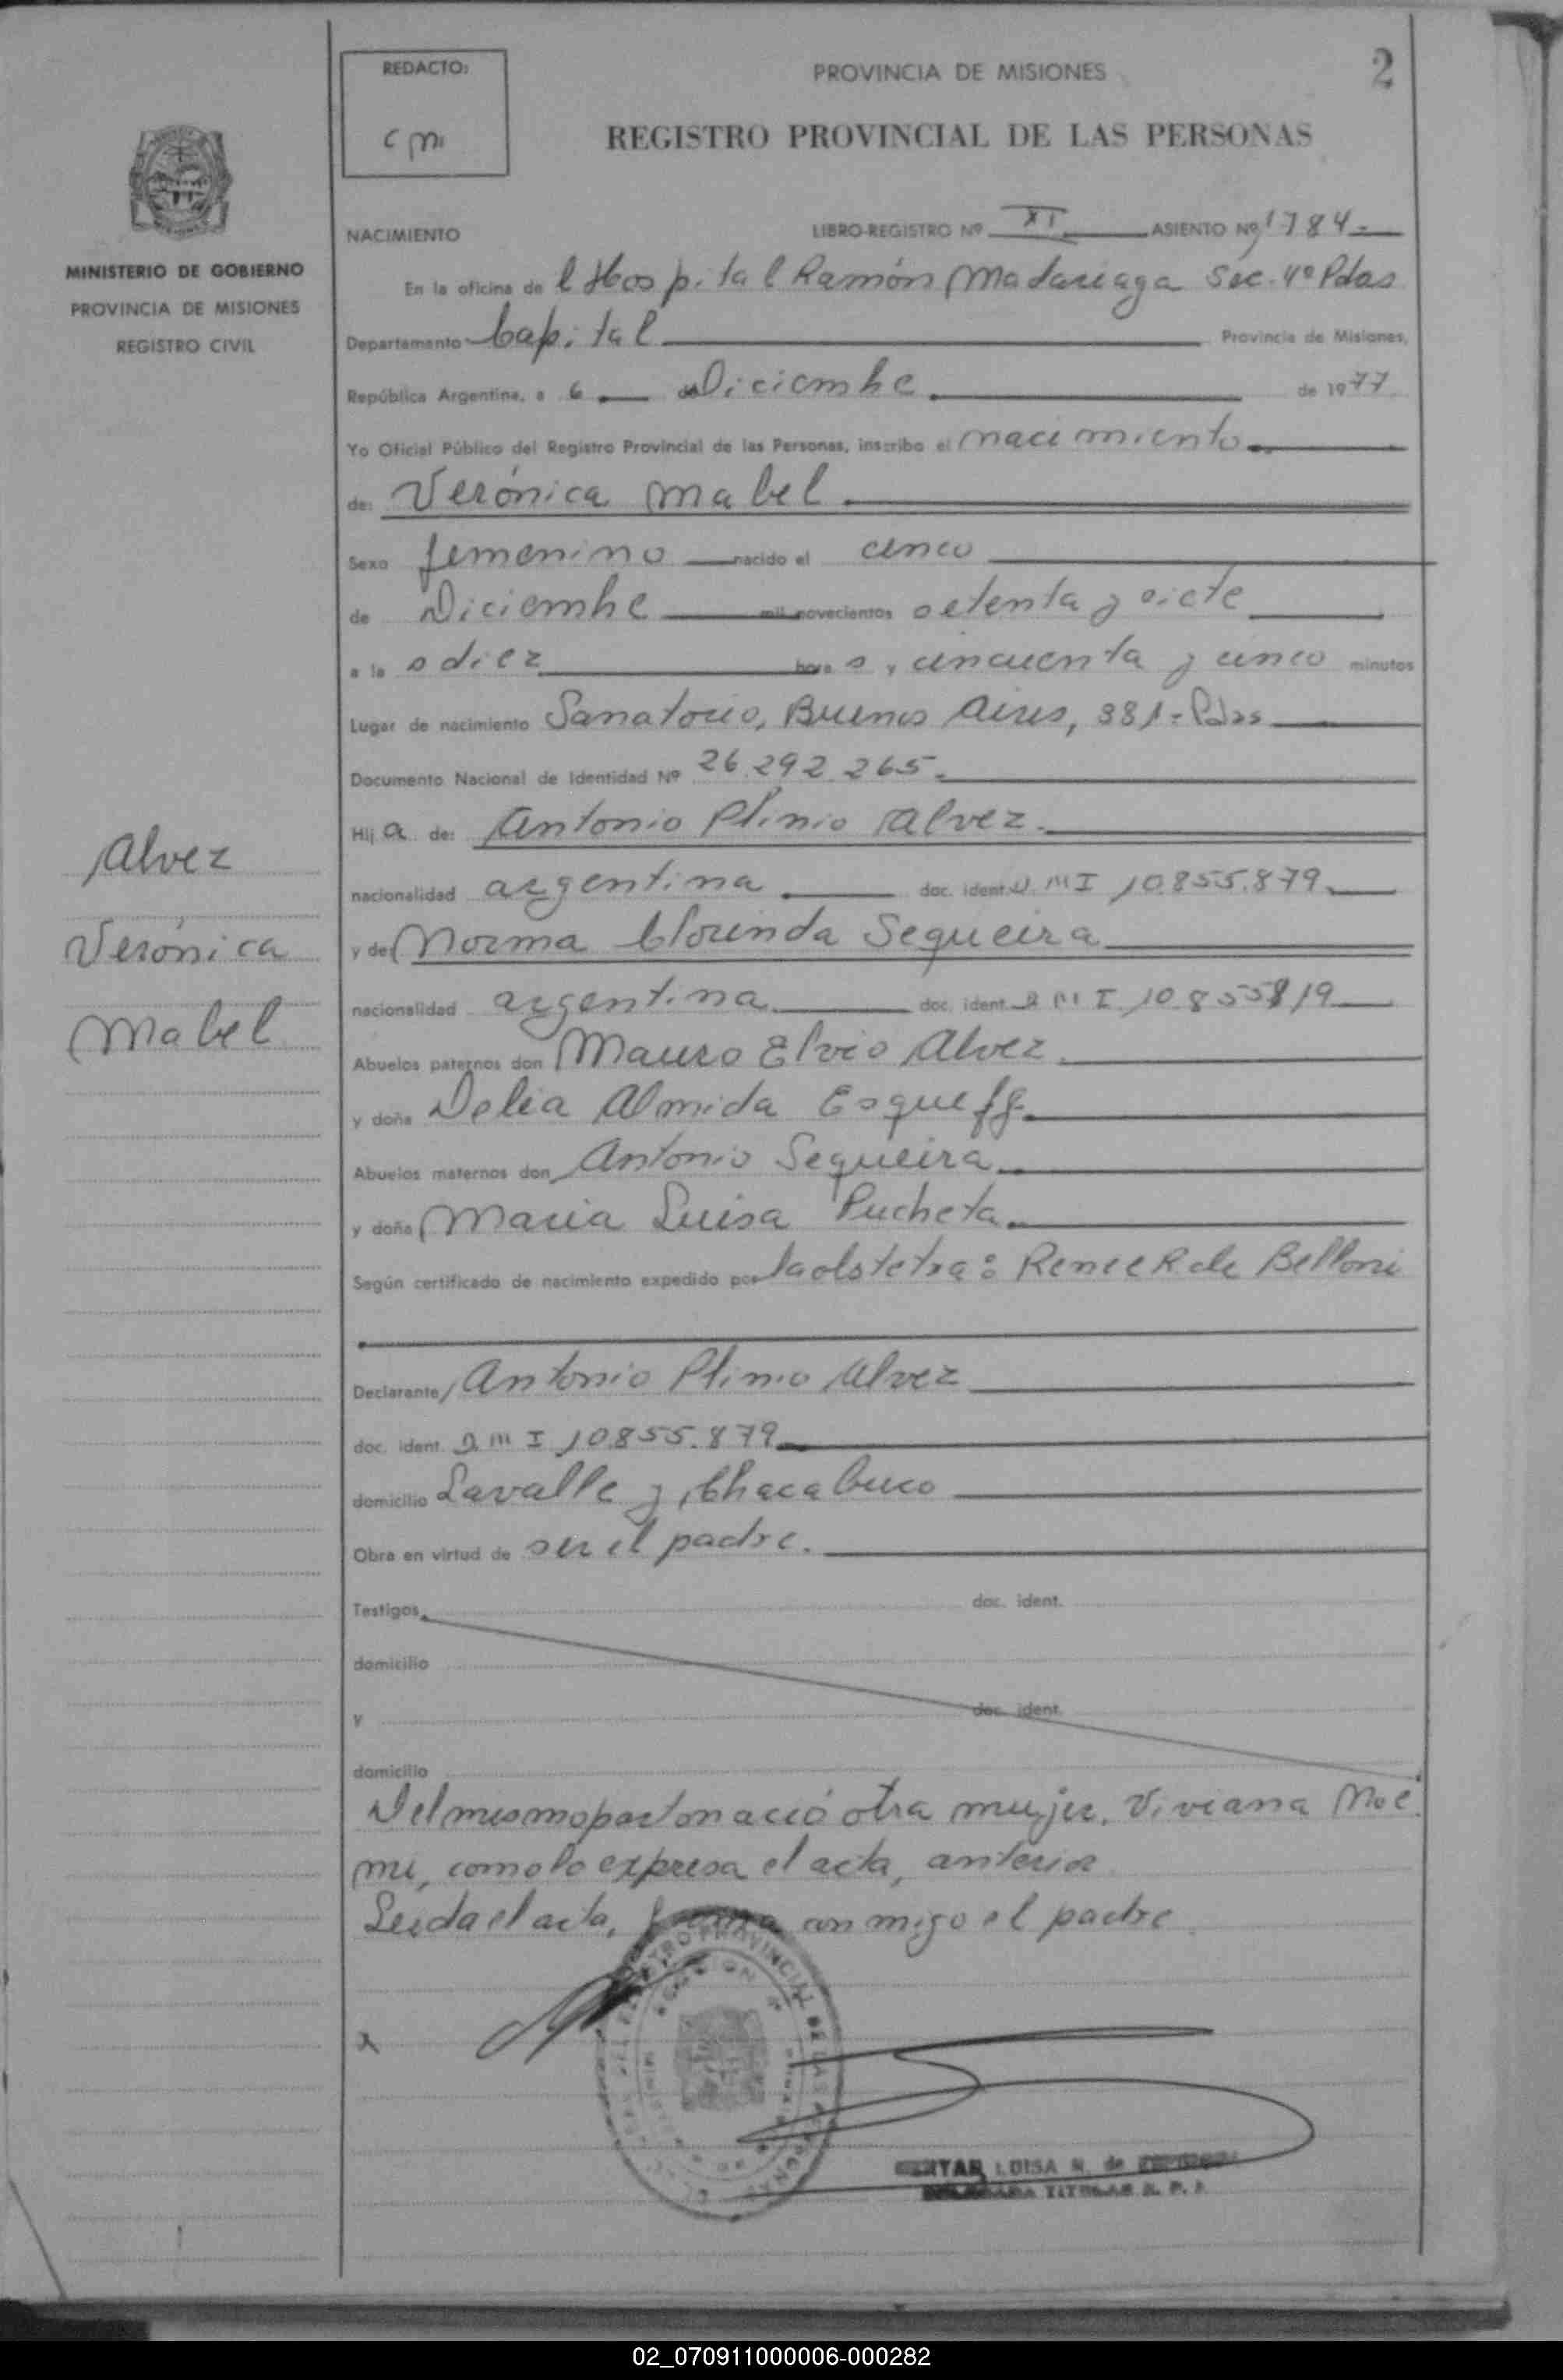 REDACTO:
C M
PROVINCIA DE MISIONES
2
REGISTRO PROVINCIAL DE LAS PERSONAS
MINISTERIO DE GOBIERNO
PROVINCIA DE MISIONES
REGISTRO CIVIL
NACIMIENTO LIBRO-REGISTRO Nº XI ASIENTO Nº 1784.-
En la oficina de l Hospital Ramón Madariaga Sec. 4º Pdas
Departamento Capital Provincia de Misiones,
República Argentina, a 6 de Diciembre de 1977
Yo Oficial Público del Registro Provincial de las Personas, inscribo el nacimiento
de: Verónica Mabel
Sexo femenino nacido el cinco
de Diciembre mil novecientos setenta y siete
a la s diez hora s y cincuenta y cinco minutos
Lugar de nacimiento Sanatorio, Buenos Aires, 381 - Pdas
Documento Nacional de Identidad Nº 26.292.265.
Hij a de: Antonio Plinio Alvez
nacionalidad argentina doc. ident. D M I 10.855.879
y de Norma Clorinda Sequeira
nacionalidad argentina doc. ident. D M I 10.855819
Abuelos paternos don Mauro Elvio Alvez
y doña Delia Almida Esqueff
Abuelos maternos don Antonio Sequeira
y doña Maria Luisa Pucheta
Según certificado de nacimiento expedido por la obstetra: Renee R de Belloni
Declarante Antonio Plinio Alvez
doc. ident. D M I 10.855.879
domicilio Lavalle y Chacabuco
Obra en virtud de ser el padre.
Testigos doc. ident.
domicilio
y doc. ident.
domicilio
Del mismo parto nació otra mujer, Viviana Noe
mi, como lo expresa el acta, anterior
Leida el acta, firma conmigo el padre
x
Alvez
Verónica
Mabel
LUISA N. de
TITULAR R. P. P.
02_070911000006-000282